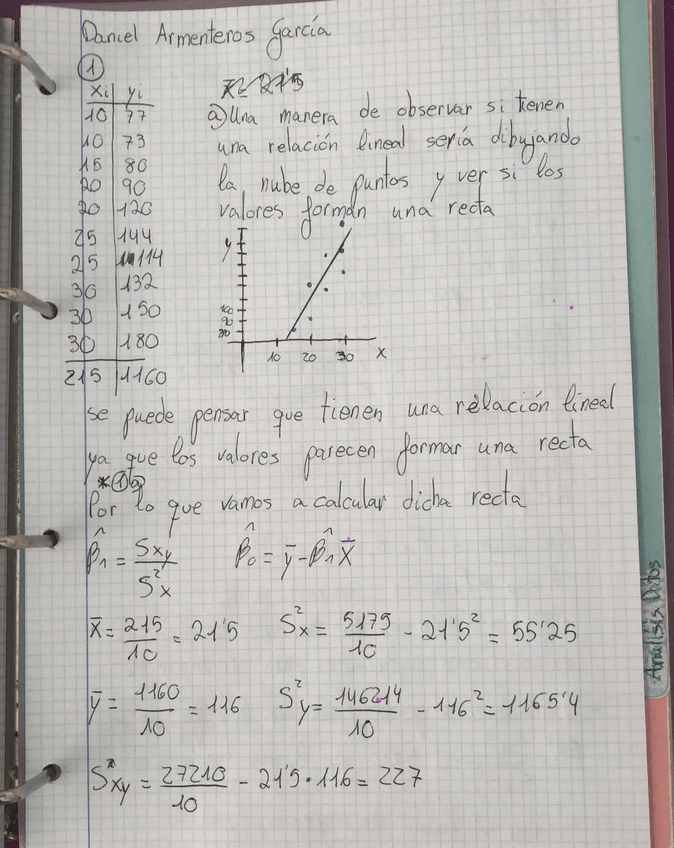 Daniel Armenteros García
1
xi yi
10 77
10 73
15 80
20 90
20 120
25 144
25 114
30 132
30 150
30 180
215 1160
x = 21'5
a) Una manera de observar si tienen
una relación lineal sería dibujando
la nube de puntos y ver si los
valores forman una recta
y
100
90
80
10 20 30 x
se puede pensar que tienen una relación lineal
ya que los valores parecen formar una recta
* 1 a)
Por lo que vamos a calcular dicha recta
β̂1 = Sxy / S²x β̂0 = ȳ - β̂1 x̄
x̄ = 215/10 = 21'5 S²x = 5175/10 - 21'5² = 55'25
ȳ = 1160/10 = 116 S²y = 146214/10 - 116² = 1165'4
Sxy = 27210/10 - 21'5·116 = 227
Análisis Datos